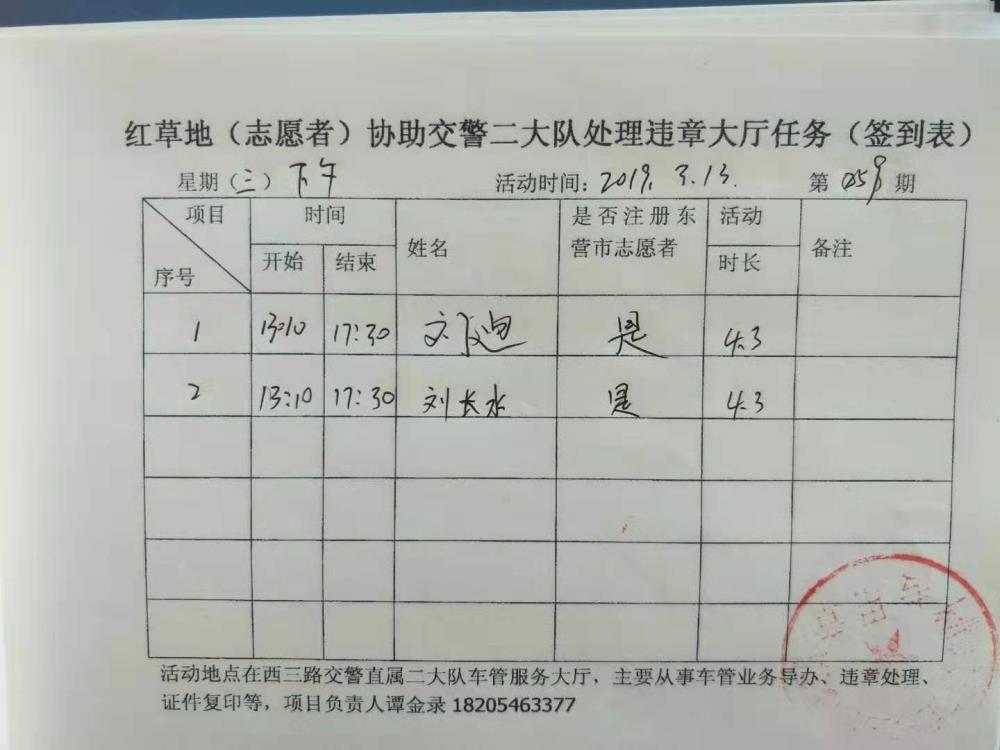 红草地（志愿者）协助交警二大队处理违章大厅任务（签到表）
星期（三）下午 活动时间：2019. 3.13. 第 期
项目 时间 姓名 是否注册东营市志愿者 活动时长 备注
序号 开始 结束
1 13:10 17:30 是 4.3
2 13:10 17:30 刘长水 是 4.3
活动地点在西三路交警直属二大队车管服务大厅，主要从事车管业务导办、违章处理、
证件复印等，项目负责人谭金录 18205463377